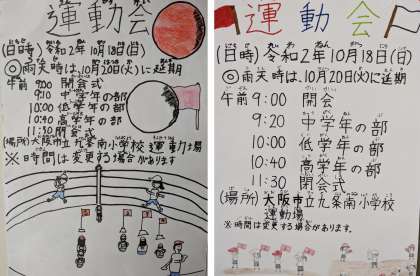 運動会
(日時) 令和2年10月18日(日)
◎雨天時は10月20日(火)に延期
午前 9:00 開会式
9:10 中学年の部
10:00 低学年の部
10:40 高学年の部
11:30 閉会式
(場所) 大阪市立九条南小学校 運動場
※時間は変更する場合があります
運動会
(日時) 令和2年10月18日(日)
◎雨天時は、10月20日(火)に延期
午前 9:00 開会
9:20 中学年の部
10:00 低学年の部
10:40 高学年の部
11:30 閉会式
(場所) 大阪市立九条南小学校
運動場
※時間は変更する場合があります。